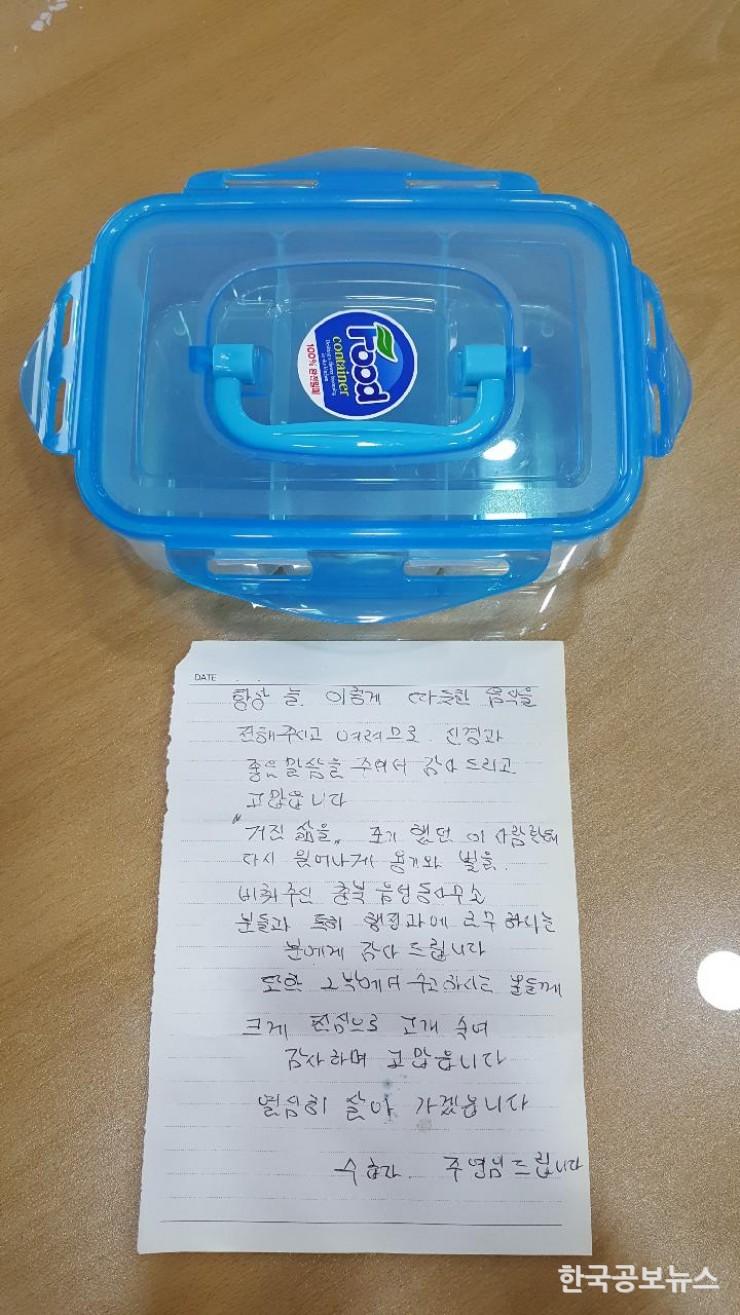 Food
container
100% 완전밀폐
DATE . .
항상 늘. 이렇게 따뜻한 음식을
전해주시고 여러므로. 친절과
좋은 말씀을 주어서 감사드리고
고맙습니다
"거진 삶을" 포기 했던 이 사람한테
다시 일어나게 용기와 빛을.
비춰주신 충북 음성 동사무소
분들과 특히 행정과에 근무 하시는
분에게 감사 드립니다
또한 그 밖에서 수고하시는 분들께
크게 진심으로 고개 숙여
감사하며 고맙습니다
열심히 살아 가겠습니다
수혜자. 드립니다
한국공보뉴스